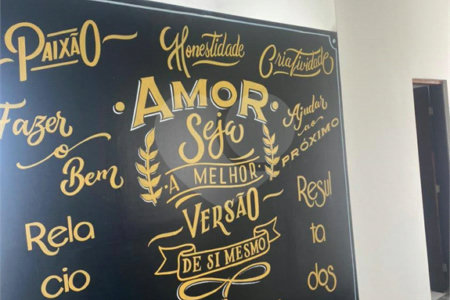 PAIXÃO
Honestidade
Criatividade
AMOR
Fazer
o
Bem
Seja
A MELHOR
VERSÃO
DE SI MESMO
Ajudar
ao
PRÓXIMO
Rela
cio
Resul
ta
dos